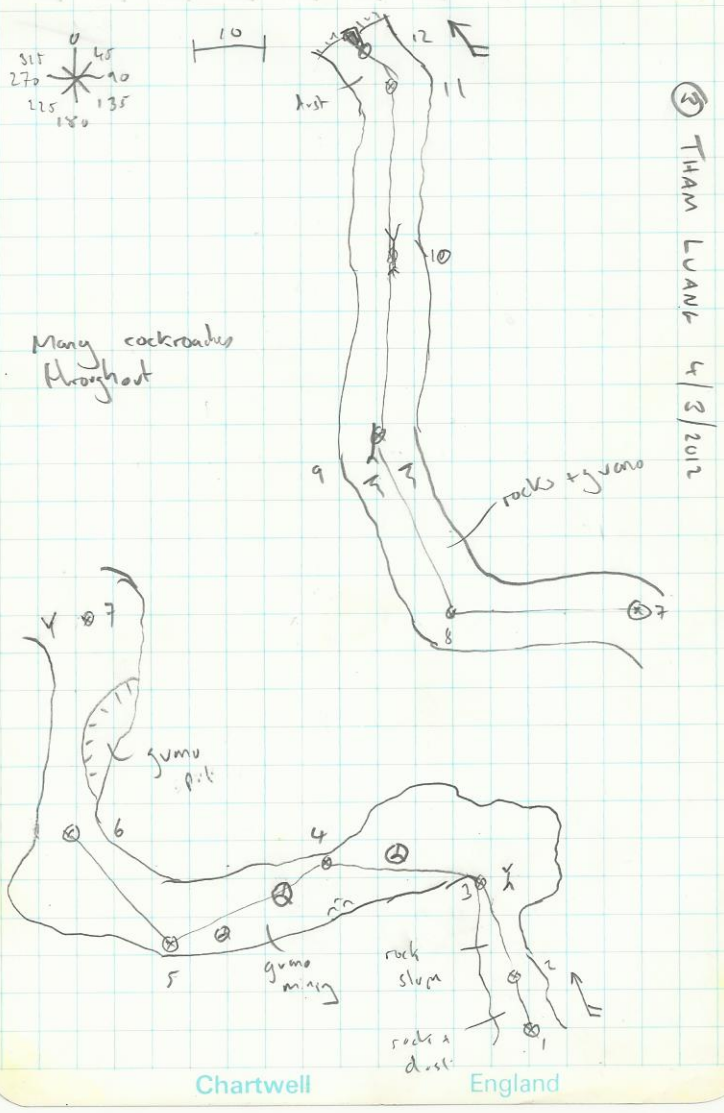 0
315 45
270 90
225 135
180
10
12
11
dust
10
③ THAM LUANG 4/3/2012
Many cockroaches
throughout
9
rocks + guano
8
7
7
guano
pit
6
4
3
5
guano
mining
rock
slope
2
rocks +
dust
1
Chartwell England